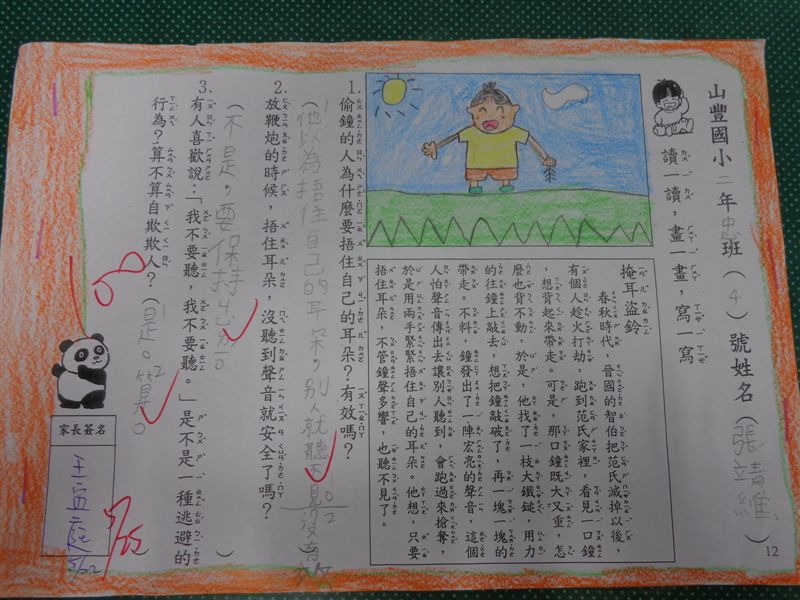 山豐國小二年忠班（4）號姓名（張靖維）
讀一讀，畫一畫，寫一寫
掩耳盜鈴
春秋時代，晉國的智伯把范氏滅掉以後，
有個人趁火打劫，跑到范氏家裡，看見一口鐘
，想背起來帶走。可是，那口鐘既大又重，怎
麼也背不動，於是，他找了一枝大鐵鎚，用力
的往鐘上敲去，想把鐘敲破了，再一塊一塊的
帶走。不料，鐘發出了一陣宏亮的聲音，這個
人怕聲音傳出去讓別人聽到，會跑過來搶奪，
於是用兩手緊緊捂住自己的耳朵。他想，只要
捂住耳朵，不管鐘聲多響，也聽不見了。
1.偷鐘的人為什麼要捂住自己的耳朵？有效嗎？
（他以為捂住自己的耳朵，別人就聽不見沒有效
2.放鞭炮的時候，捂住耳朵，沒聽到聲音就安全了嗎？
（不是，要保持
3.有人喜歡說：「我不要聽，我不要聽。」是不是一種逃避的
行為？算不算自欺欺人？（是。算。）
家長簽名
5/22
5/25
12